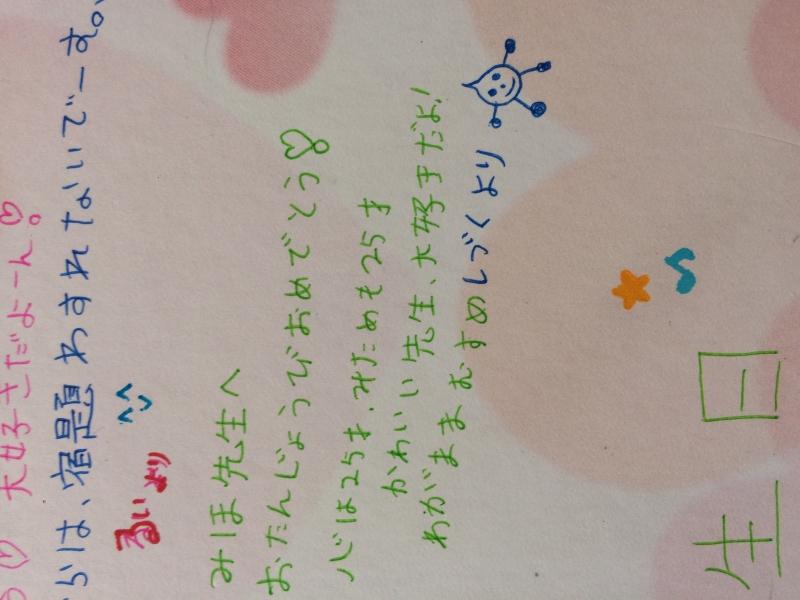 大好きだよーん♡
らは、宿題わすれないでーす。
るいより
みほ先生へ
おたんじょうびおめでとう
心は25才、みためも25才
かわいい先生、大好きだよ!
わがままむすめしづくより
生日